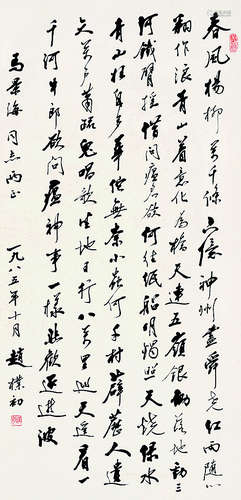 春風楊柳萬千條六億神州盡舜堯紅雨隨心
翻作浪青山着意化為橋天連五嶺銀鋤落地動三
河鐵臂搖借問瘟君欲何往紙船明燭照天燒綠水
青山枉自多華佗無奈小虫何千村薜荔人遺
矢萬戶蕭疏鬼唱歌坐地日行八萬里巡天遙看一
千河牛郎欲問瘟神事一樣悲歡逐逝波
馬景海同志两正
一九八五年十月 趙樸初